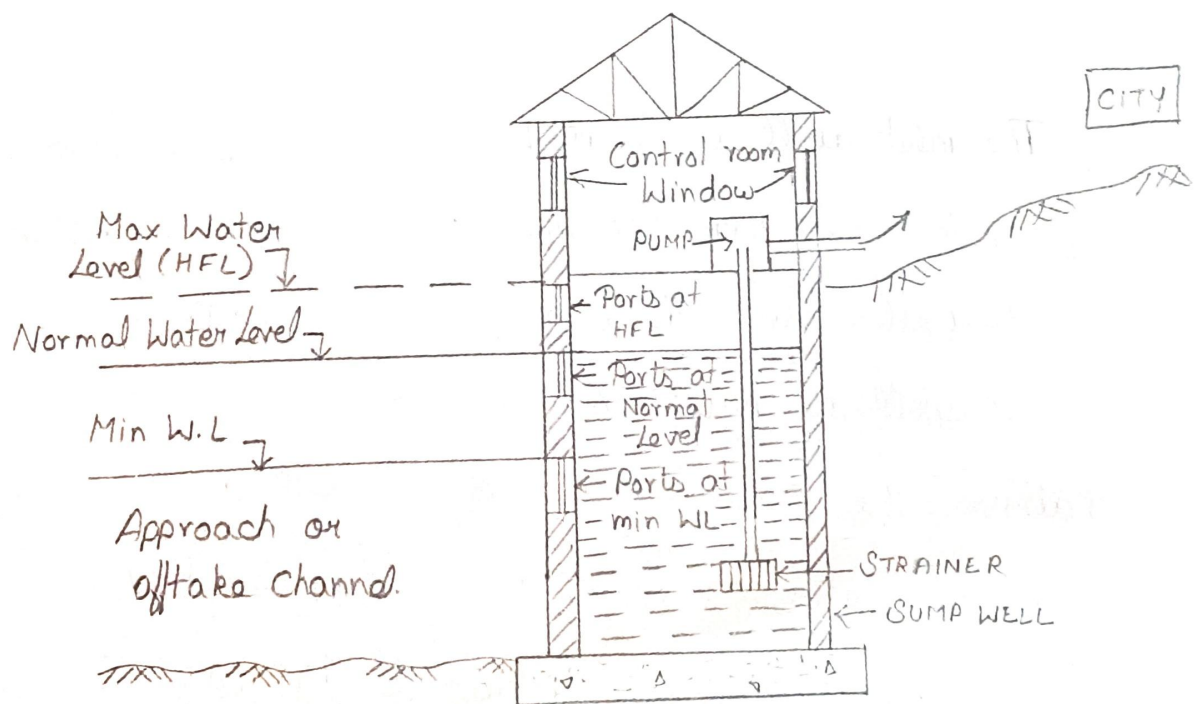 CITY
Control room
Window
Max Water
Level (HFL)
PUMP
Ports at
HFL
Normal Water Level
Ports at
Normal
Level
Min W.L
Ports at
min WL
Approach or
offtake Channel.
STRAINER
SUMP WELL